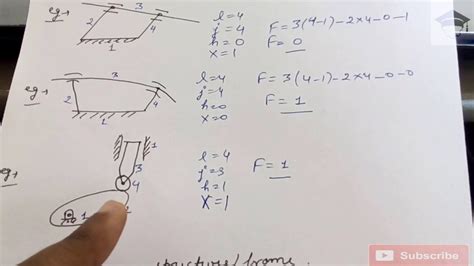 eg→ 3 l=4 F=3(4-1)-2x4-0-1
2 4 j=4 F=0
1 h=0
x=1
3 l=4 F=3(4-1)-2x4-0-0
eg→ 2 4 j=4 F=1
1 h=0
x=0
1 l=4 F=1
3 j=3
eg→ 4 h=1
1 X=1
structure/frame
Subscribe